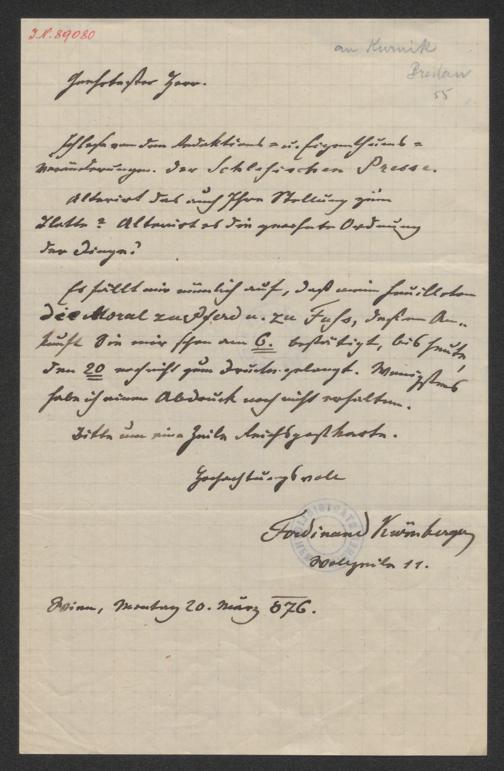 J.N. 89080
an Kurnik
Breslau
55
Geehrtester Herr.
Ich lese von den Redaktions- u. Eigenthums-
veränderungen der Schlesischen Presse.
Alterirt das auch Ihre Stellung zum
Blatte? Alterirt es die gewohnte Ordnung
der Dinge?
Es fällt mir nämlich auf, daß mein Feuilleton
die Moral zu Pferd u. zu Fuß, dessen An-
kunft Sie mir schon am 6. bestätigt, bis heute,
den 20 noch nicht zum Drucke gelangt. Wenigstens
habe ich einen Abdruck noch nicht erhalten.
Bitte um eine Zeile Reichspostkarte.
Hochachtungsvoll
Ferdinand Kürnberger
11.
Wien, Montag 20. März 876.